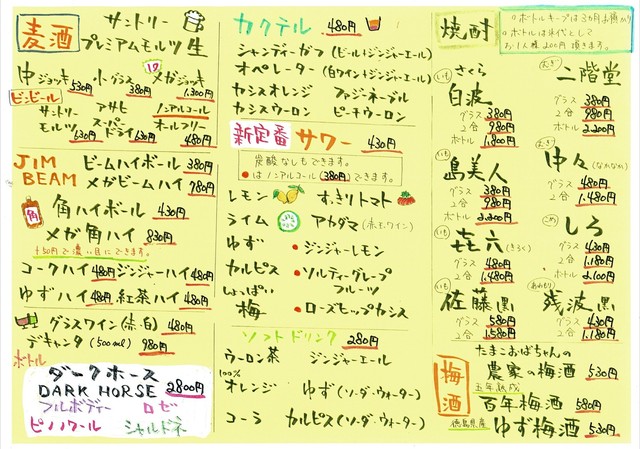 麦酒
サントリー
プレミアムモルツ 生
中ジョッキ 530円
小グラス 380円
メガジョッキ 1,300円
ビンビール
サントリーモルツ 630円
アサヒスーパードライ 630円
ノンアルコール
オールフリー 480円
JIM BEAM
ビームハイボール 380円
メガビームハイ 780円
角
角ハイボール 430円
メガ角ハイ 830円
+50円で濃い目にできます。
コークハイ 480円 ジンジャーハイ 480円
ゆずハイ 480円 紅茶ハイ 480円
グラスワイン(赤・白) 480円
デキャンタ(500ml) 980円
ボトル
ダークホース
DARK HORSE 2800円
フルボディー ロゼ
ピノノワール シャルドネ
カクテル 480円
シャンディーガフ(ビール+ジンジャーエール)
オペレーター(白ワイン+ジンジャーエール)
カシスオレンジ ファジーネーブル
カシスウーロン ピーチウーロン
新定番 サワー 430円
炭酸なしもできます。
●はノンアルコール(380円)できます。
レモン すっきりトマト
ライム アカダマ(赤玉ワイン)
ゆず ●ジンジャーレモン
カルピス ●ソルティーグレープフルーツ
しょっぱい梅 ●ローズヒップカシス
ソフトドリンク 280円
ウーロン茶 ジンジャーエール
100%
オレンジ ゆず(ソーダ・ウォーター)
コーラ カルピス(ソーダ・ウォーター)
焼酎
○ボトルキープは3カ月お預かり
○ボトルは氷代として
お1人様200円頂きます。
いも さくら白波
グラス 380円
2合 980円
ボトル 1.800円
むぎ 二階堂
グラス 380円
2合 980円
ボトル 2.200円
いも 島美人
グラス 380円
2合 980円
ボトル 2.200円
むぎ 中々(なかなか)
グラス 480円
2合 1.480円
いも 㐂六(きろく)
グラス 480円
2合 1.480円
こめ しろ
グラス 430円
2合 1.180円
ボトル 2.100円
いも 佐藤 黒
グラス 580円
2合 1.580円
あわもり 残波 黒
グラス 430円
2合 1.180円
梅酒
たまこおばちゃんの
農家の梅酒 530円
五年熟成
百年梅酒 580円
徳島県産 ゆず梅酒 530円